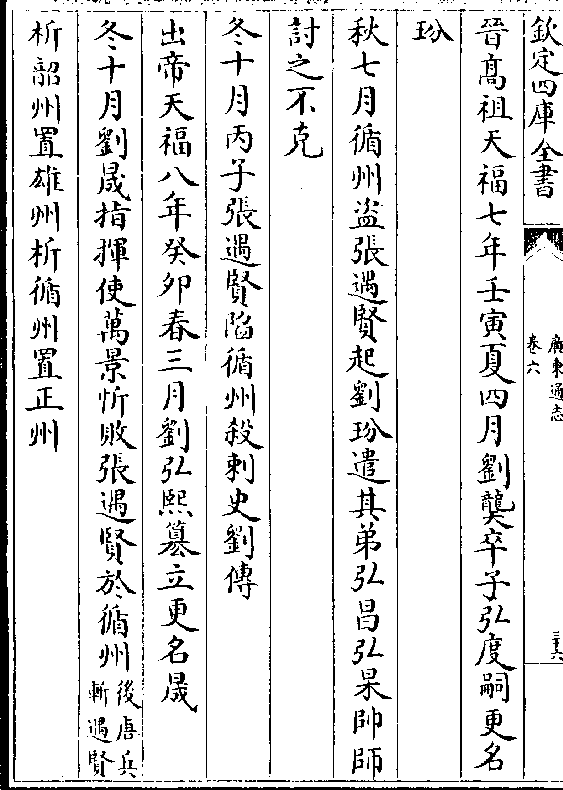 欽定四庫全書
廣東通志
卷六
三十六
晉髙祖天福七年壬寅夏四月劉龑卒子弘度嗣更名
玢
秋七月循州盜張遇賢起劉玢遣其弟弘昌弘杲帥師
討之不克
冬十月丙子張遇賢陷循州殺刺史劉傳
出帝天福八年癸卯春三月劉弘熙簒立更名晟
冬十月劉晟指揮使萬景忻敗張遇賢於循州後唐兵
斬遇賢
析韶州置雄州析循州置正州